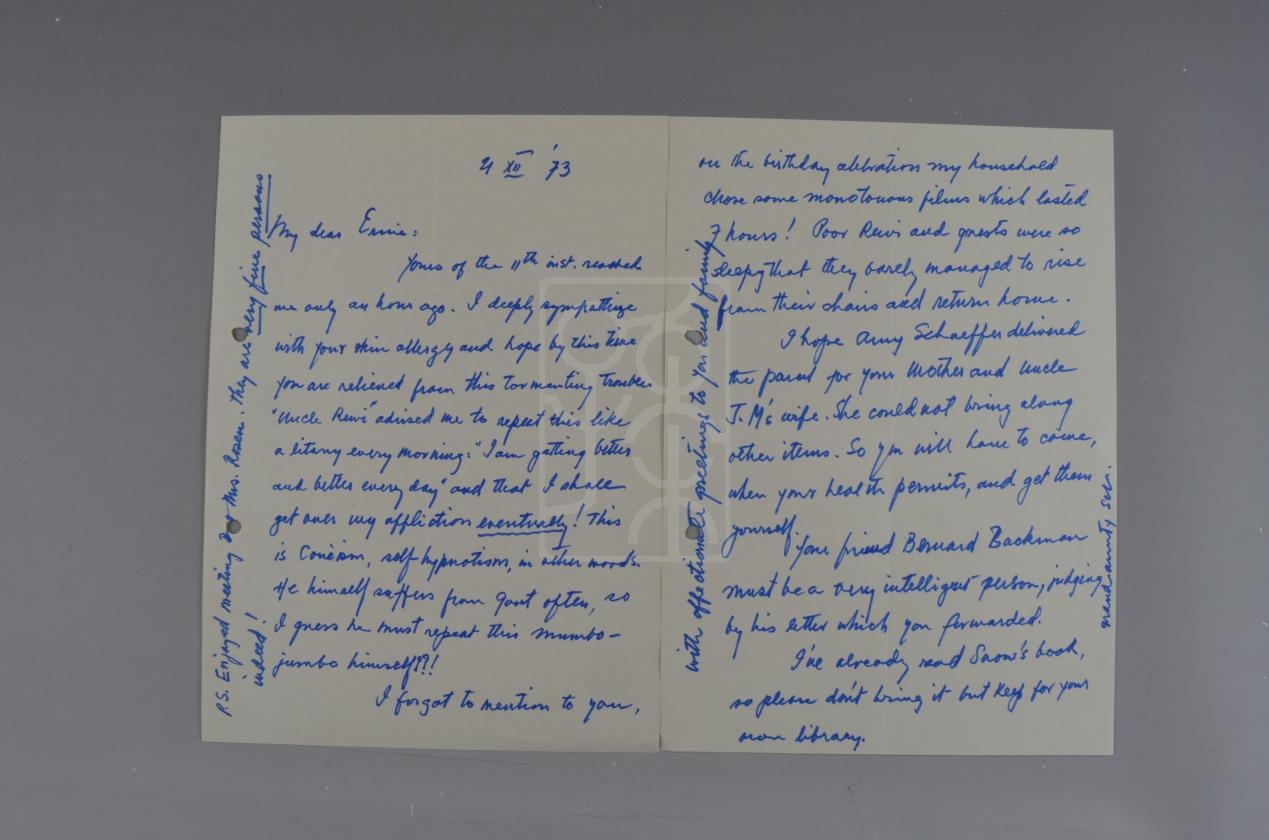 21 XII '73
My dear Ernie:
Yours of the 11th inst. reached
me only an hour ago. I deeply sympathize
with your skin allergy and hope by this time
you are relieved from this tormenting trouble.
"Uncle Rewi" advised me to repeat this like
a litany every morning: "I am getting better
and better every day" and that I shall
get over my affliction eventually! This
is Couéism, self-hypnotism, in other words.
He himself suffers from gout often, so
I guess he must repeat this mumbo-
jumbo himself??!
I forgot to mention to you,
on the birthday celebration my household
chose some monotonous films which lasted
7 hours! Poor Rewi and guests were so
sleepy that they barely managed to rise
from their chairs and return home.
I hope Amy Schaeffer delivered
the parcel for your Mother and Uncle
J.M's wife. She could not bring along
other items. So you will have to come,
when your health permits, and get them
yourself.
Your friend Bernard Backman
must be a very intelligent person, judging
by his letter which you forwarded.
I've already read Snow's book,
so please don't bring it but keep for your
own library.
with affectionate greetings to you and family
grand aunty SCL.
P.S. Enjoyed meeting Dr & Mrs. Rosen. They are very fine persons
indeed!